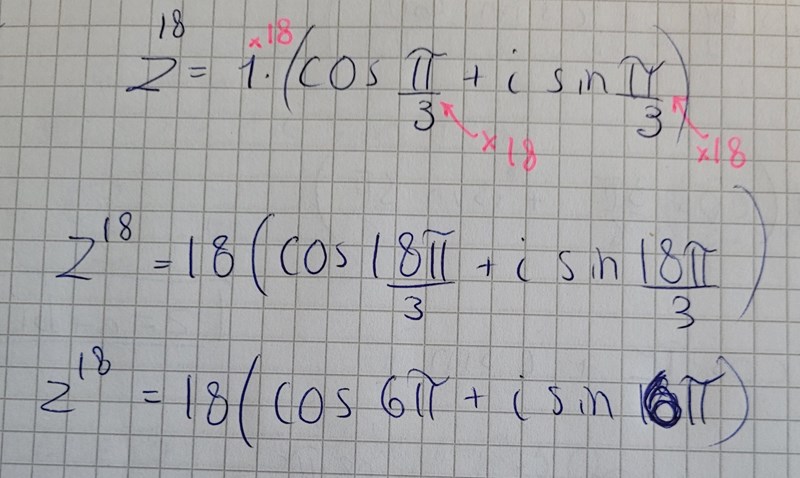 z^18 = 1^×18 · (cos π/3 + i sin π/3)
×18 ×18
z^18 = 18 (cos 18π/3 + i sin 18π/3)
z^18 = 18 (cos 6π + i sin 6π)